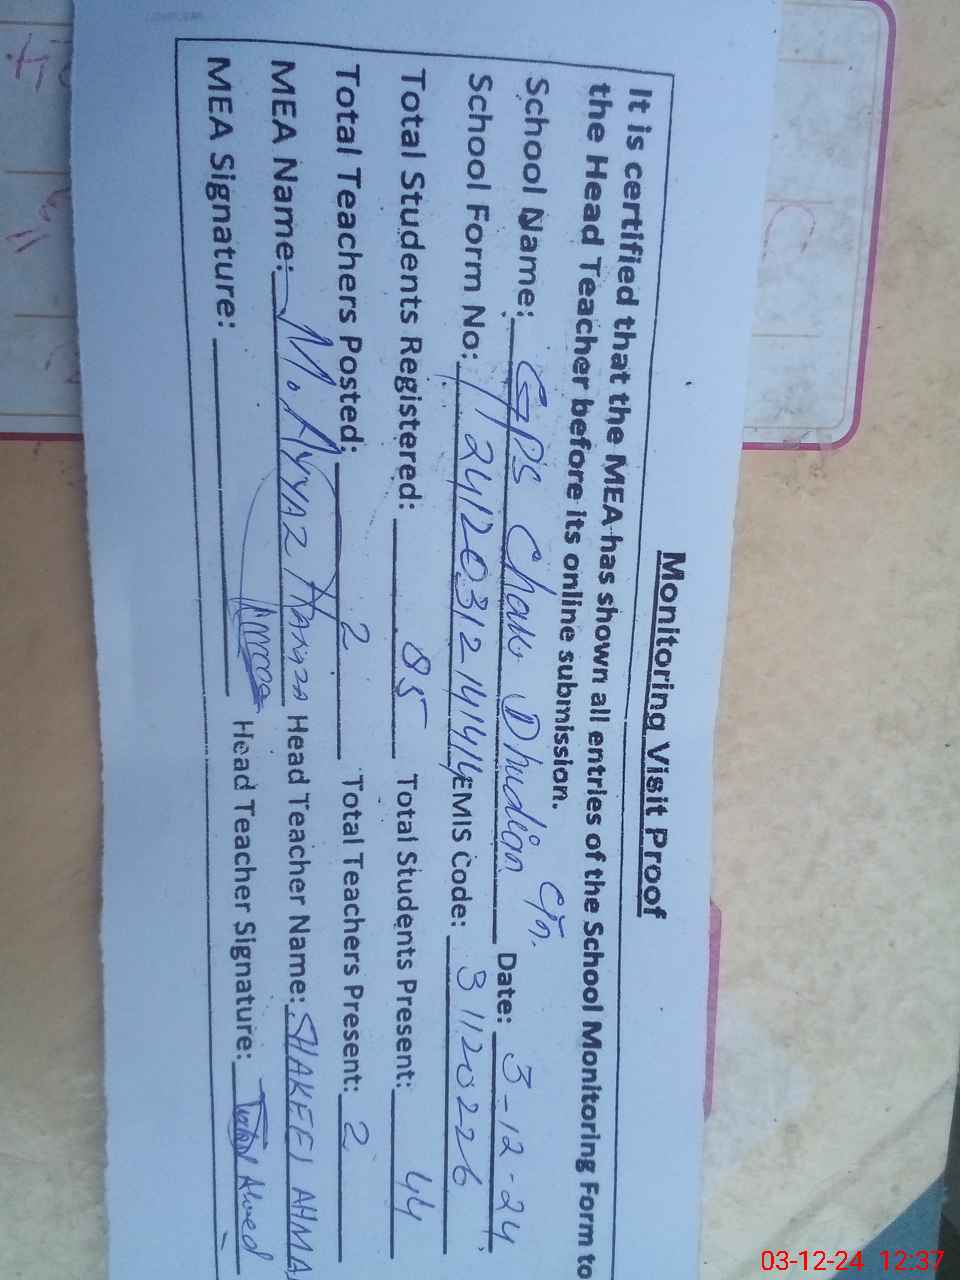 Monitoring Visit Proof
It is certified that the MEA has shown all entries of the School Monitoring Form to
the Head Teacher before its online submission.
School Name: GPS Chak Dhudian Date: 3-12-24
School Form No: 124120312141414 EMIS Code: 31120226
Total Students Registered: 85 Total Students Present: 44
Total Teachers Posted: 2 Total Teachers Present: 2
MEA Name: M. AYYAZ Head Teacher Name: SHAKEEL AHMA
MEA Signature: Head Teacher Signature:
03-12-24 12:37